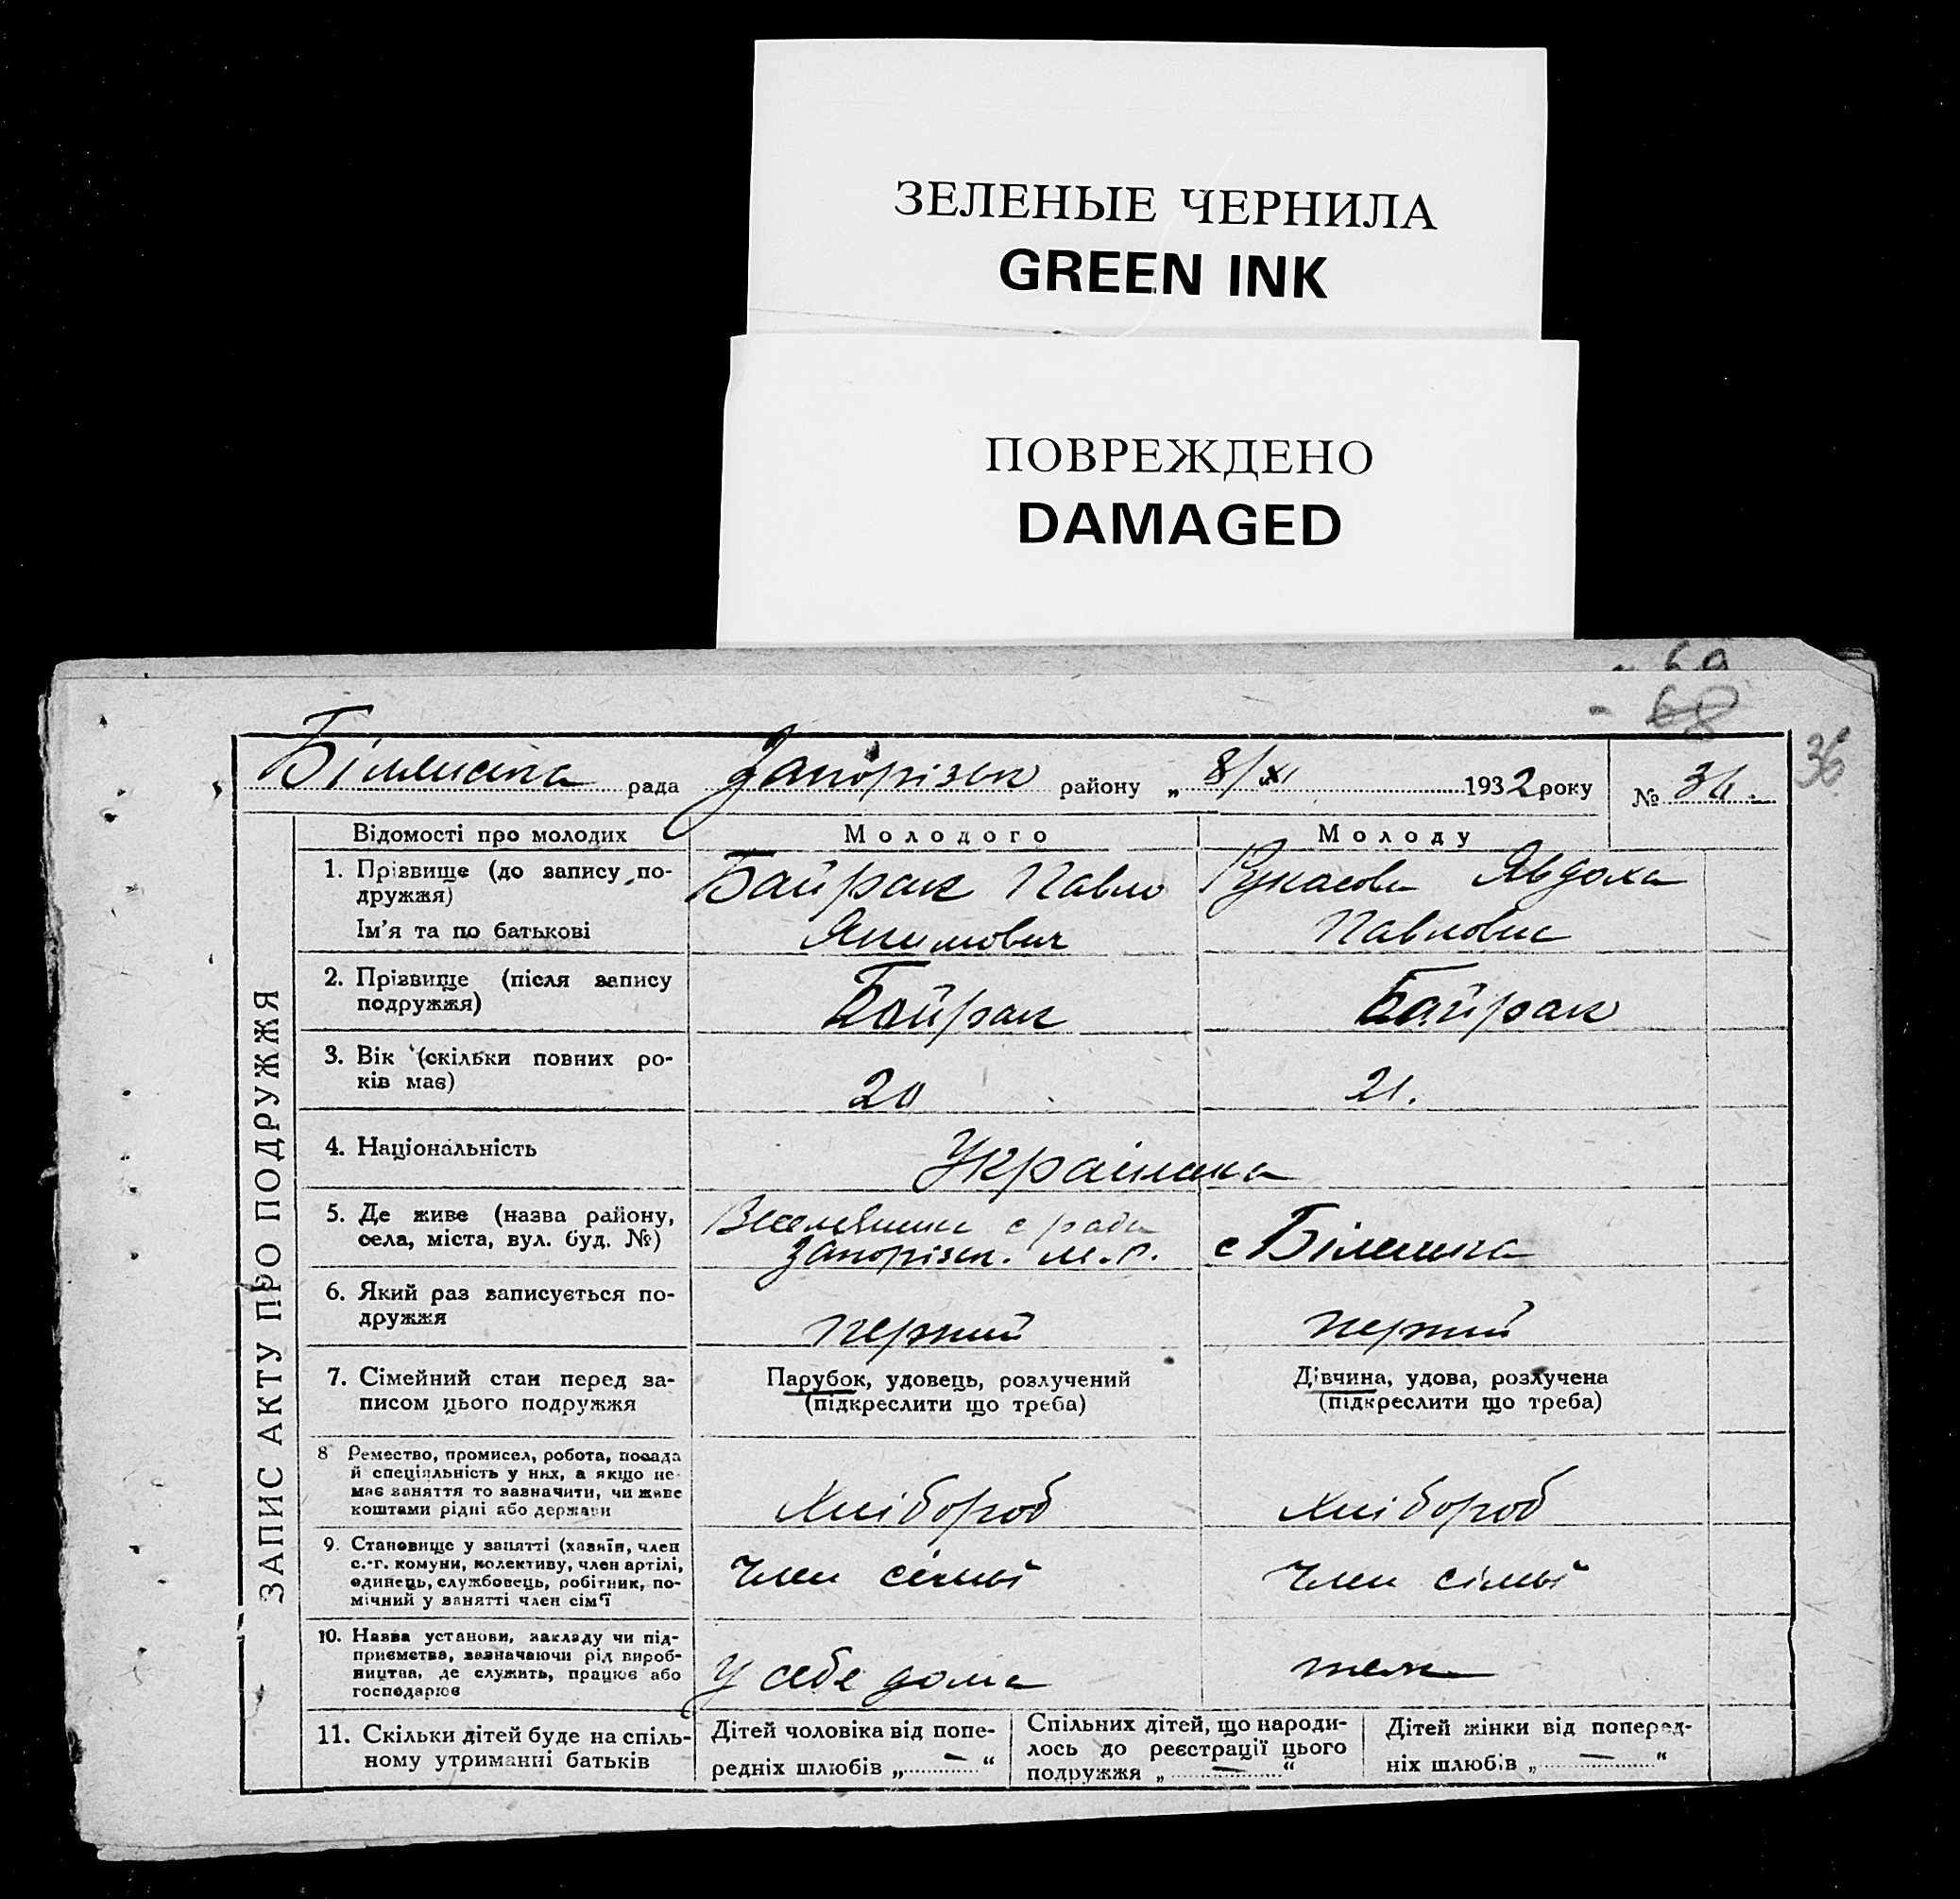 ЗЕЛЕНЫЕ ЧЕРНИЛА
GREEN INK
ПОВРЕЖДЕНО
DAMAGED
69
68
36
рада Запорізьк району „ 8/XI 1932 року № 36.
ЗАПИС АКТУ ПРО ПОДРУЖЖЯ
Відомості про молодих
Молодого
Молоду
1. Прізвище (до запису по-
дружжя)
Ім'я та по батькові
Байрак Павло
Якимович
Явдоха
Павловна
2. Прізвище (після запису
подружжя)
Байрак
Байрак
3. Вік (скільки повних ро-
ків має)
20
21.
4. Національність
Українська
5. Де живе (назва району,
села, міста, вул. буд. №)
с рада
Запорізьк. м.р.
с Біленька
6. Який раз записується по-
дружжя
перший
перший
7. Сімейний стан перед за-
писом цього подружжя
Парубок, удовець, розлучений
(підкреслити що треба)
Дівчина, удова, розлучена
(підкреслити що треба)
8 Ремество, промисел, робота, посада
й спеціяльність у них, а якщо не
має заняття то зазначити, чи живе
коштами рідні або держави
Хлібороб
Хлібороб
9. Становище у занятті (хазяїн, член
с.-г. комуни, колективу, член артілі,
одинець, службовець, робітник, по-
мічний у занятті член сім'ї
Член сімьї
Член сімьї
10. Назва установи, закладу чи під-
приємства, зазначаючи рід вироб-
ництва, де служить, працює або
господарює
у себе дома
теж
11. Скільки дітей буде на спіль-
ному утриманні батьків
Дітей чоловіка від попе-
редніх шлюбів „ — “
Спільних дітей, що народи-
лось до реєстрації цього
подружжя „ — “
Дітей жінки від поперед-
ніх шлюбів „ — “